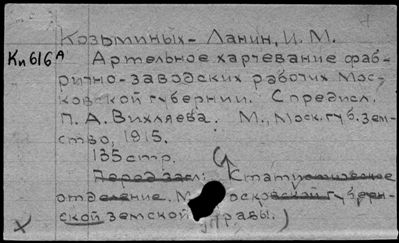 Козьминых-Ланин, И. М.
Кп616А
Артельное харчевание фаб-
рично-заводских рабочих Мос-
ковской губернии. С предисл.
П. А. Вихляева. М., Моск. губ. зем-
ство, 1915.
135 стр.
Перед загл: Статистическое
отделение. Московской губерн-
ской земской управы.)